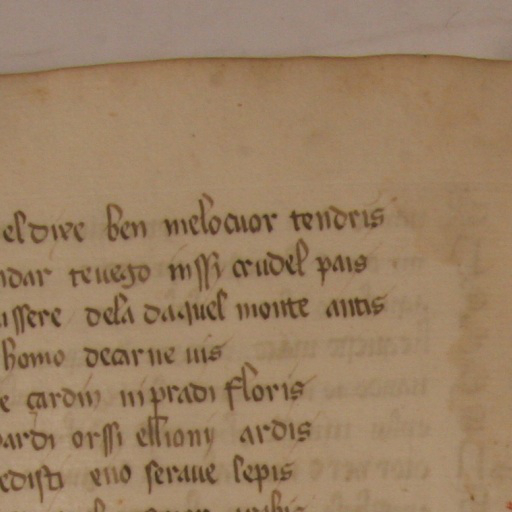 el dire ben melo cuor tendris
ndar te uego in ssi crudel pais
ussere dela da quel monte antis
homo de carne uis
e çardin ni pradi floris
pardi orssi e lliony ardis
edisti eno seraue sepis